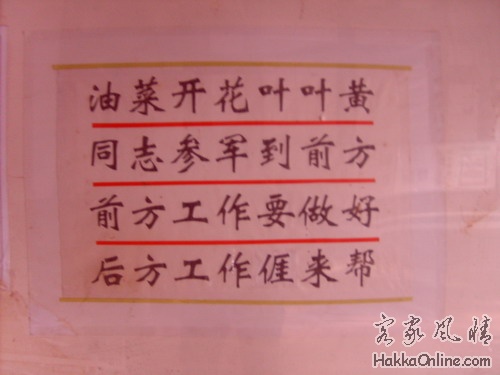 油菜开花叶叶黄
同志参军到前方
前方工作要做好
后方工作𠊎来帮
客家风情
HakkaOnline.com